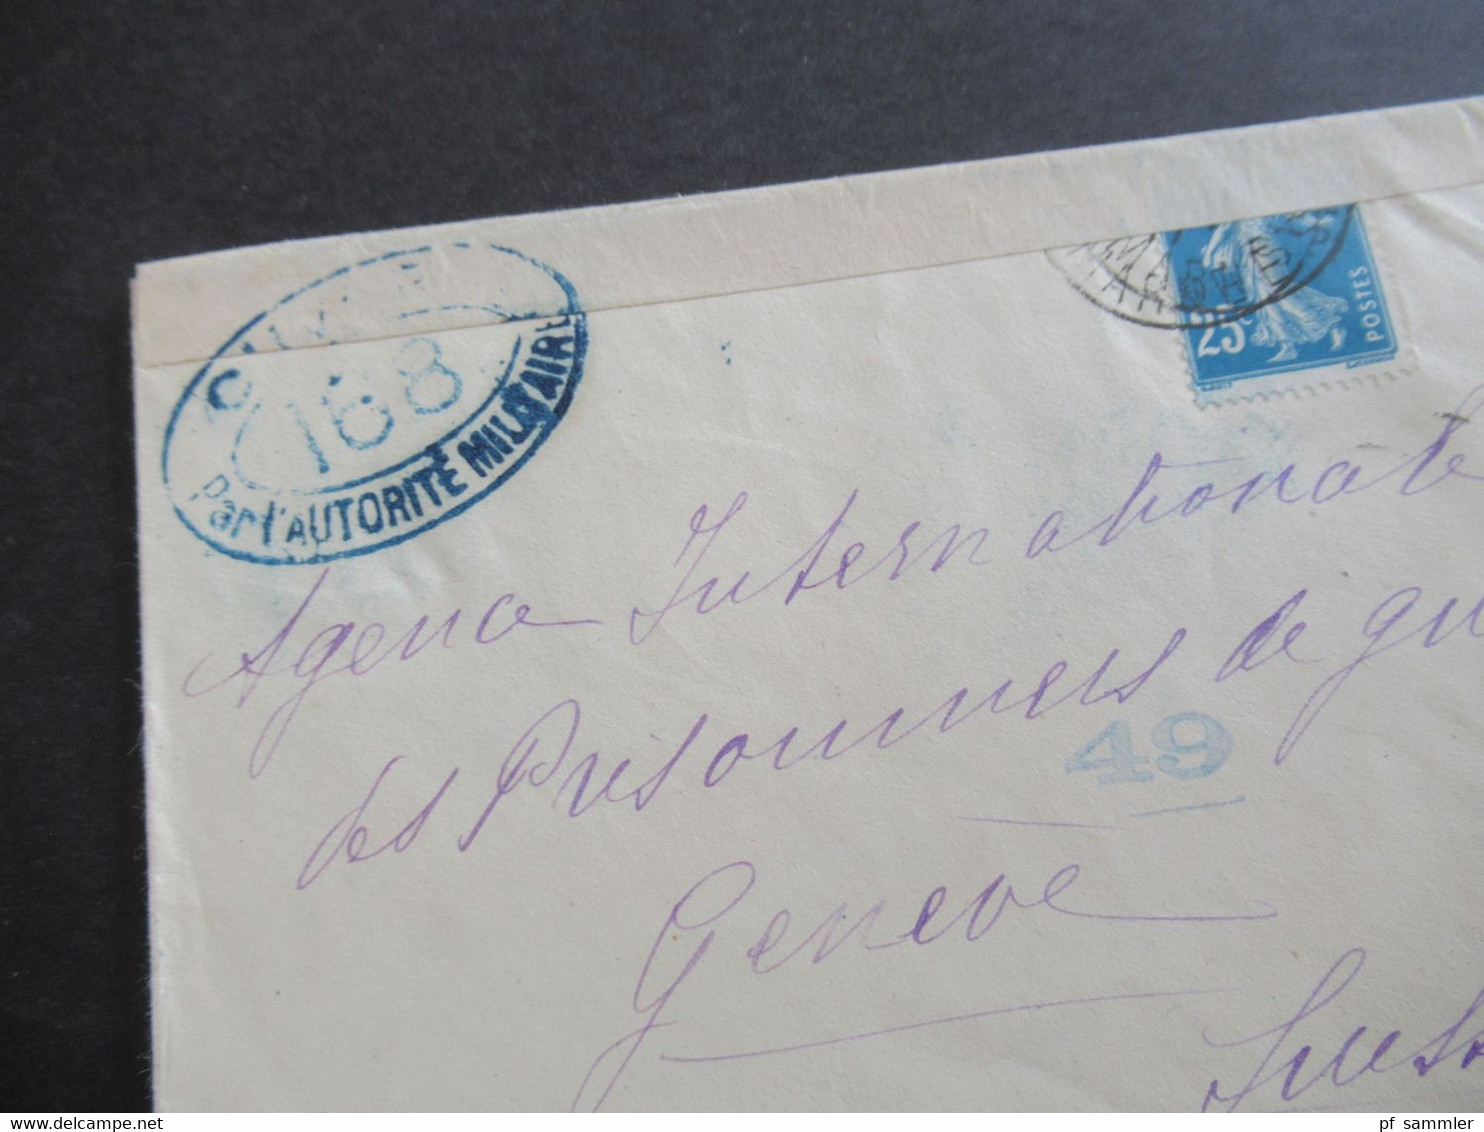 OUVERT
168
Par l'AUTORITÉ MILITAIRE
25c
POSTES
Agence Internationale
des Prisonniers de gu
49
Genève
Suiss
www.delcampe.net
pf_sammler